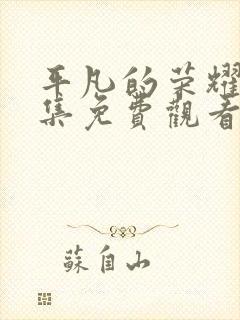 平凡的荣耀
集免費觀看
蘇自山